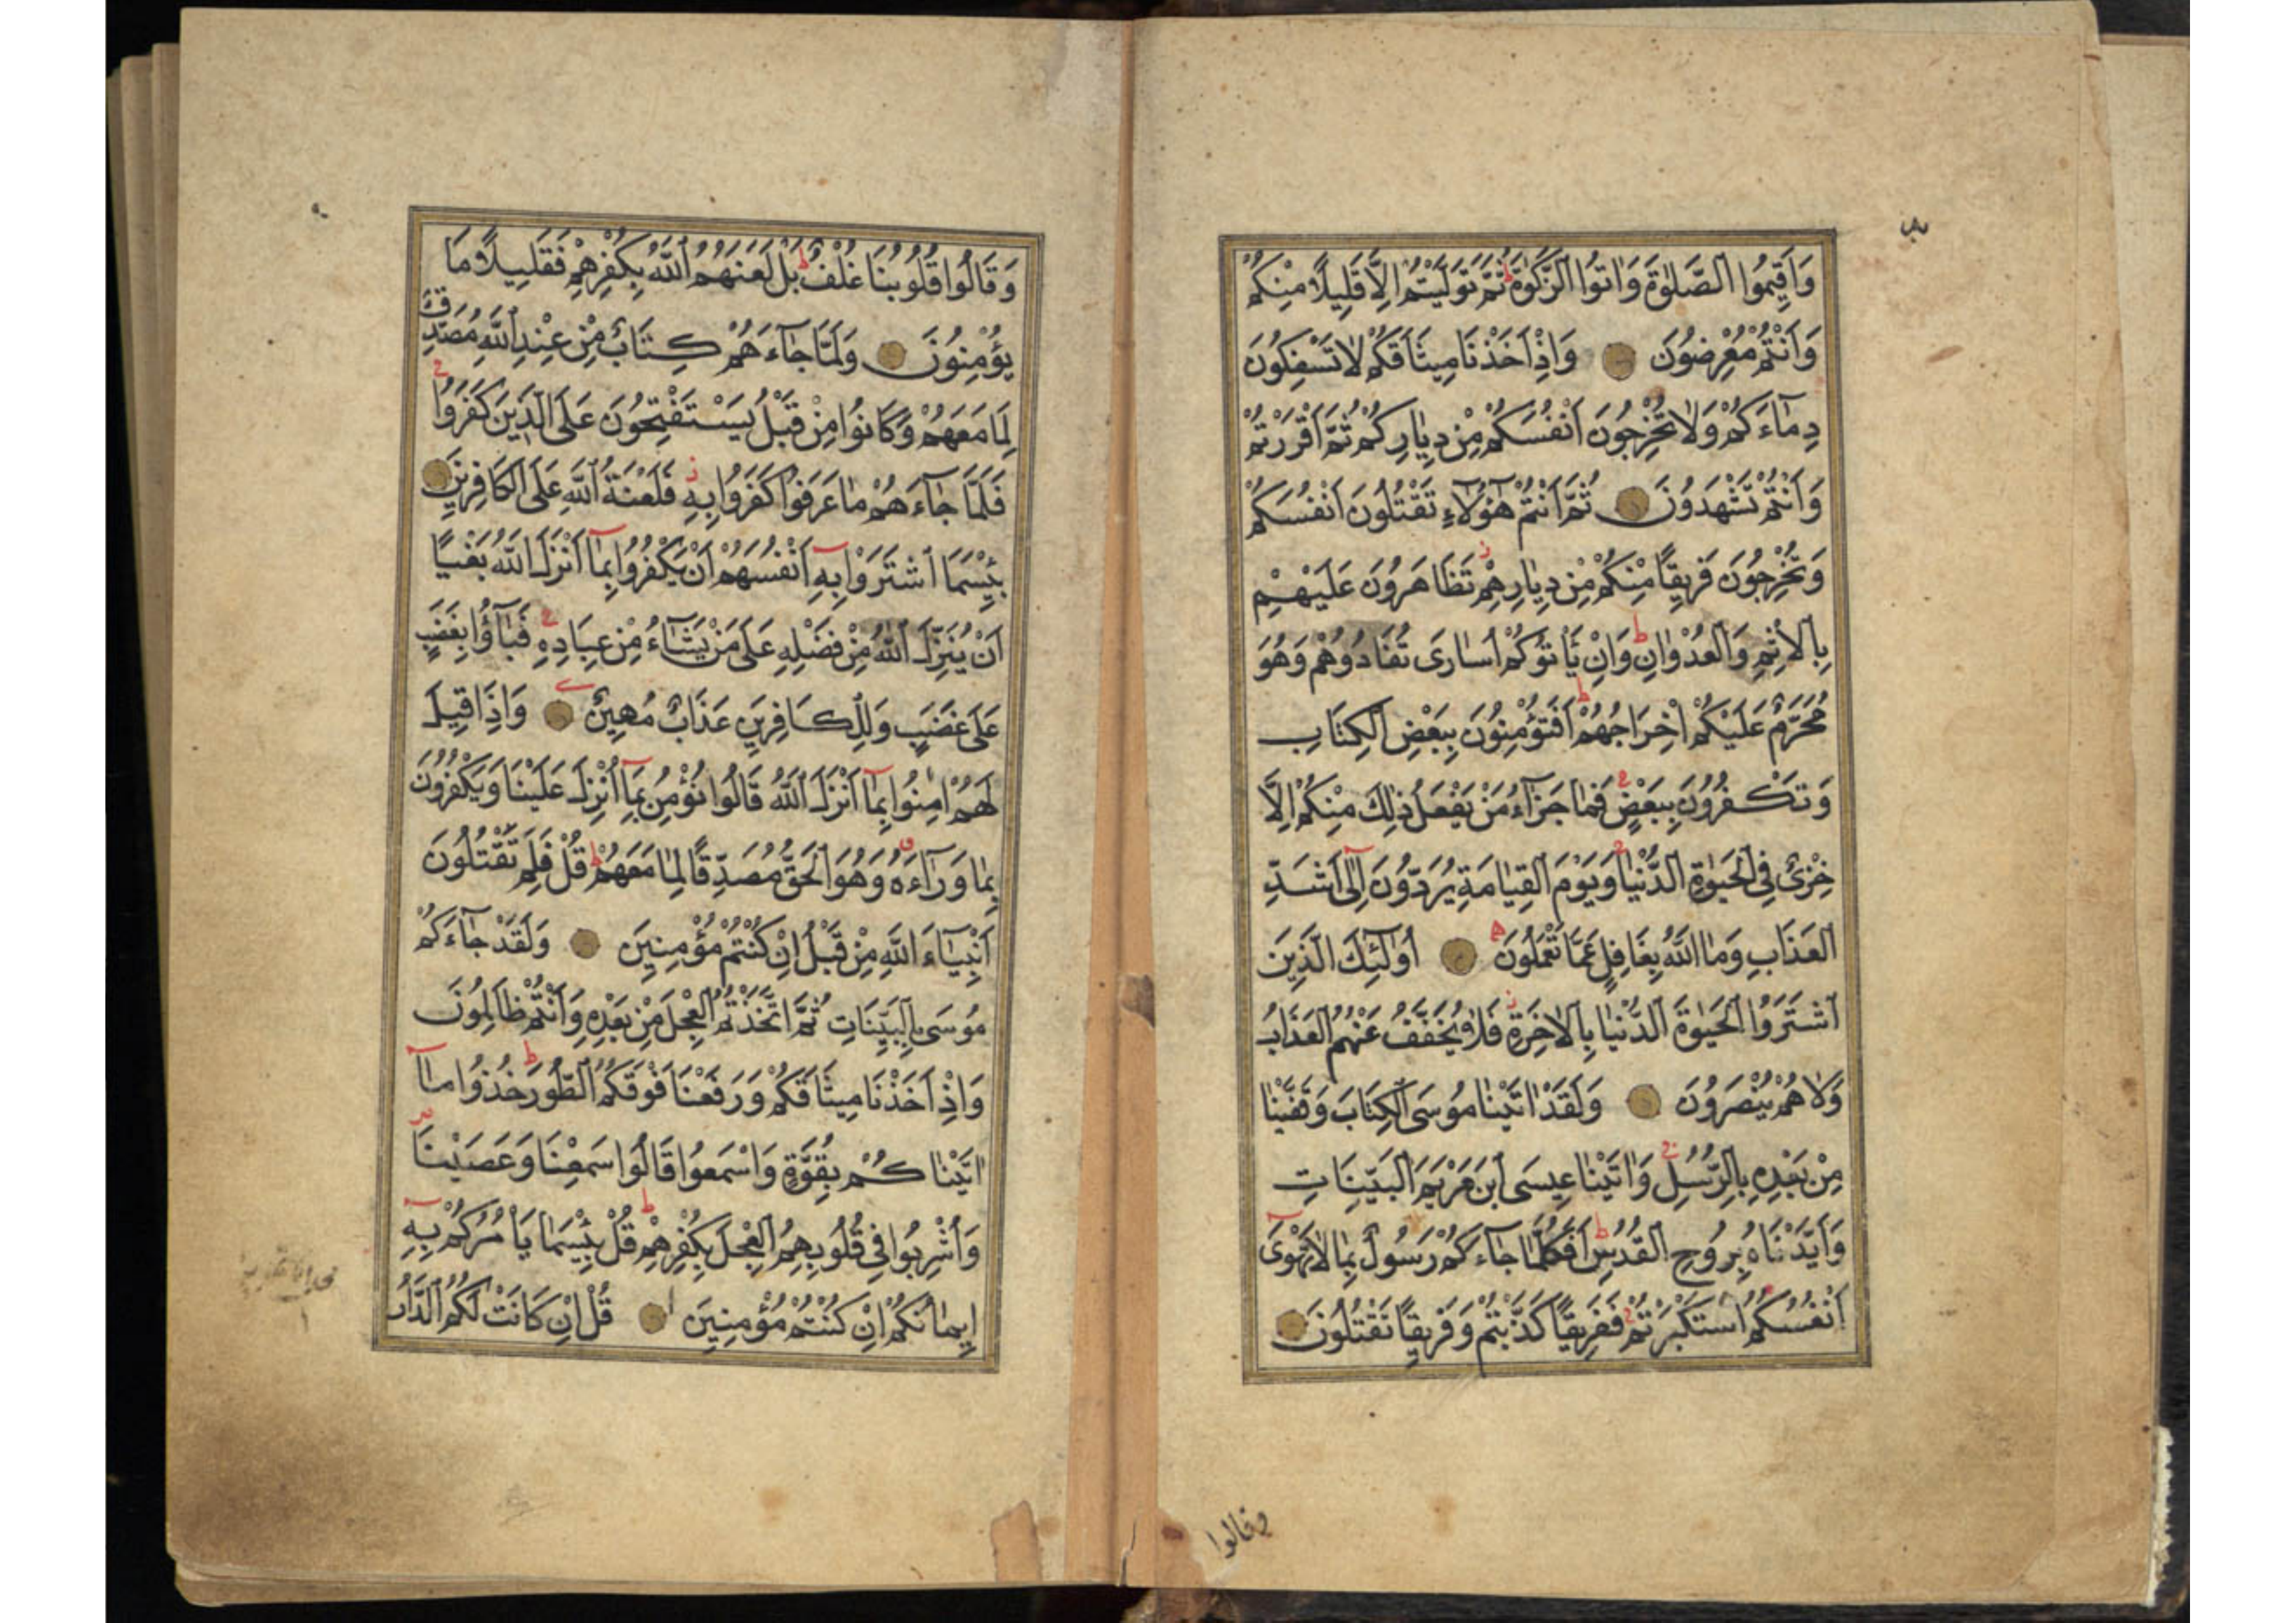 وَاَقِيمُوا الصَّلٰوةَ وَاٰتُوا الزَّكٰوةَ ط ثُمَّ تَوَلَّيْتُمْ اِلَّا قَلِيلًا مِنْكُمْ
وَاَنْتُمْ مُعْرِضُونَ وَاِذْ اَخَذْنَا مِيثَاقَكُمْ لَا تَسْفِكُونَ
دِمَاۤءَكُمْ وَلَا تُخْرِجُونَ اَنْفُسَكُمْ مِنْ دِيَارِكُمْ ثُمَّ اَقْرَرْتُمْ
وَاَنْتُمْ تَشْهَدُونَ ثُمَّ اَنْتُمْ هٰۤؤُلَاۤءِ تَقْتُلُونَ اَنْفُسَكُمْ
وَتُخْرِجُونَ فَرِيقًا مِنْكُمْ مِنْ دِيَارِهِمْ ز تَظَاهَرُونَ عَلَيْهِمْ
بِالْاِثْمِ وَالْعُدْوَانِ ط وَاِنْ يَأْتُوكُمْ اُسَارَى تُفَادُوهُمْ وَهُوَ
مُحَرَّمٌ عَلَيْكُمْ اِخْرَاجُهُمْ ط اَفَتُؤْمِنُونَ بِبَعْضِ الْكِتَابِ
وَتَكْفُرُونَ بِبَعْضٍ ج فَمَا جَزَاۤءُ مَنْ يَفْعَلُ ذٰلِكَ مِنْكُمْ اِلَّا
خِزْىٌ فِى الْحَيٰوةِ الدُّنْيَا ج وَيَوْمَ الْقِيَامَةِ يُرَدُّونَ اِلٰۤى اَشَدِّ
الْعَذَابِ وَمَا اللّٰهُ بِغَافِلٍ عَمَّا تَعْمَلُونَ اُولٰۤئِكَ الَّذِينَ
اشْتَرَوُا الْحَيٰوةَ الدُّنْيَا بِالْاٰخِرَةِ ز فَلَا يُخَفَّفُ عَنْهُمُ الْعَذَابُ
وَلَا هُمْ يُنْصَرُونَ وَلَقَدْ اٰتَيْنَا مُوسَى الْكِتَابَ وَقَفَّيْنَا
مِنْ بَعْدِهِ بِالرُّسُلِ ز وَاٰتَيْنَا عِيسَى ابْنَ مَرْيَمَ الْبَيِّنَاتِ
وَاَيَّدْنَاهُ بِرُوحِ الْقُدُسِ ط اَفَكُلَّمَا جَاۤءَكُمْ رَسُولٌ بِمَا لَا تَهْوٰۤى
اَنْفُسُكُمُ اسْتَكْبَرْتُمْ ج فَفَرِيقًا كَذَّبْتُمْ وَفَرِيقًا تَقْتُلُونَ
وقالوا
وَقَالُوا قُلُوبُنَا غُلْفٌ ط بَلْ لَعَنَهُمُ اللّٰهُ بِكُفْرِهِمْ فَقَلِيلًا مَا
يُؤْمِنُونَ وَلَمَّا جَاۤءَهُمْ كِتَابٌ مِنْ عِنْدِ اللّٰهِ مُصَدِّقٌ
لِمَا مَعَهُمْ وَكَانُوا مِنْ قَبْلُ يَسْتَفْتِحُونَ عَلَى الَّذِينَ كَفَرُوا ج
فَلَمَّا جَاۤءَهُمْ مَا عَرَفُوا كَفَرُوا بِهِ ز فَلَعْنَةُ اللّٰهِ عَلَى الْكَافِرِينَ
بِئْسَمَا اشْتَرَوْا بِهِۤ اَنْفُسَهُمْ اَنْ يَكْفُرُوا بِمَاۤ اَنْزَلَ اللّٰهُ بَغْيًا
اَنْ يُنَزِّلَ اللّٰهُ مِنْ فَضْلِهِ عَلَى مَنْ يَشَاۤءُ مِنْ عِبَادِهِ ج فَبَاۤؤُا بِغَضَبٍ
عَلَى غَضَبٍ وَلِلْكَافِرِينَ عَذَابٌ مُهِينٌ وَاِذَا قِيلَ
لَهُمْ اٰمِنُوا بِمَاۤ اَنْزَلَ اللّٰهُ قَالُوا نُؤْمِنُ بِمَاۤ اُنْزِلَ عَلَيْنَا وَيَكْفُرُونَ
بِمَا وَرَاۤءَهُ ق وَهُوَ الْحَقُّ مُصَدِّقًا لِمَا مَعَهُمْ ط قُلْ فَلِمَ تَقْتُلُونَ
اَنْبِيَاۤءَ اللّٰهِ مِنْ قَبْلُ اِنْ كُنْتُمْ مُؤْمِنِينَ وَلَقَدْ جَاۤءَكُمْ
مُوسَى بِالْبَيِّنَاتِ ثُمَّ اتَّخَذْتُمُ الْعِجْلَ مِنْ بَعْدِهِ وَاَنْتُمْ ظَالِمُونَ
وَاِذْ اَخَذْنَا مِيثَاقَكُمْ وَرَفَعْنَا فَوْقَكُمُ الطُّورَ ط خُذُوا مَاۤ
اٰتَيْنَاكُمْ بِقُوَّةٍ وَاسْمَعُوا قَالُوا سَمِعْنَا وَعَصَيْنَا
وَاُشْرِبُوا فِى قُلُوبِهِمُ الْعِجْلَ بِكُفْرِهِمْ ط قُلْ بِئْسَمَا يَأْمُرُكُمْ بِهِۤ
اِيمَانُكُمْ اِنْ كُنْتُمْ مُؤْمِنِينَ قُلْ اِنْ كَانَتْ لَكُمُ الدَّارُ